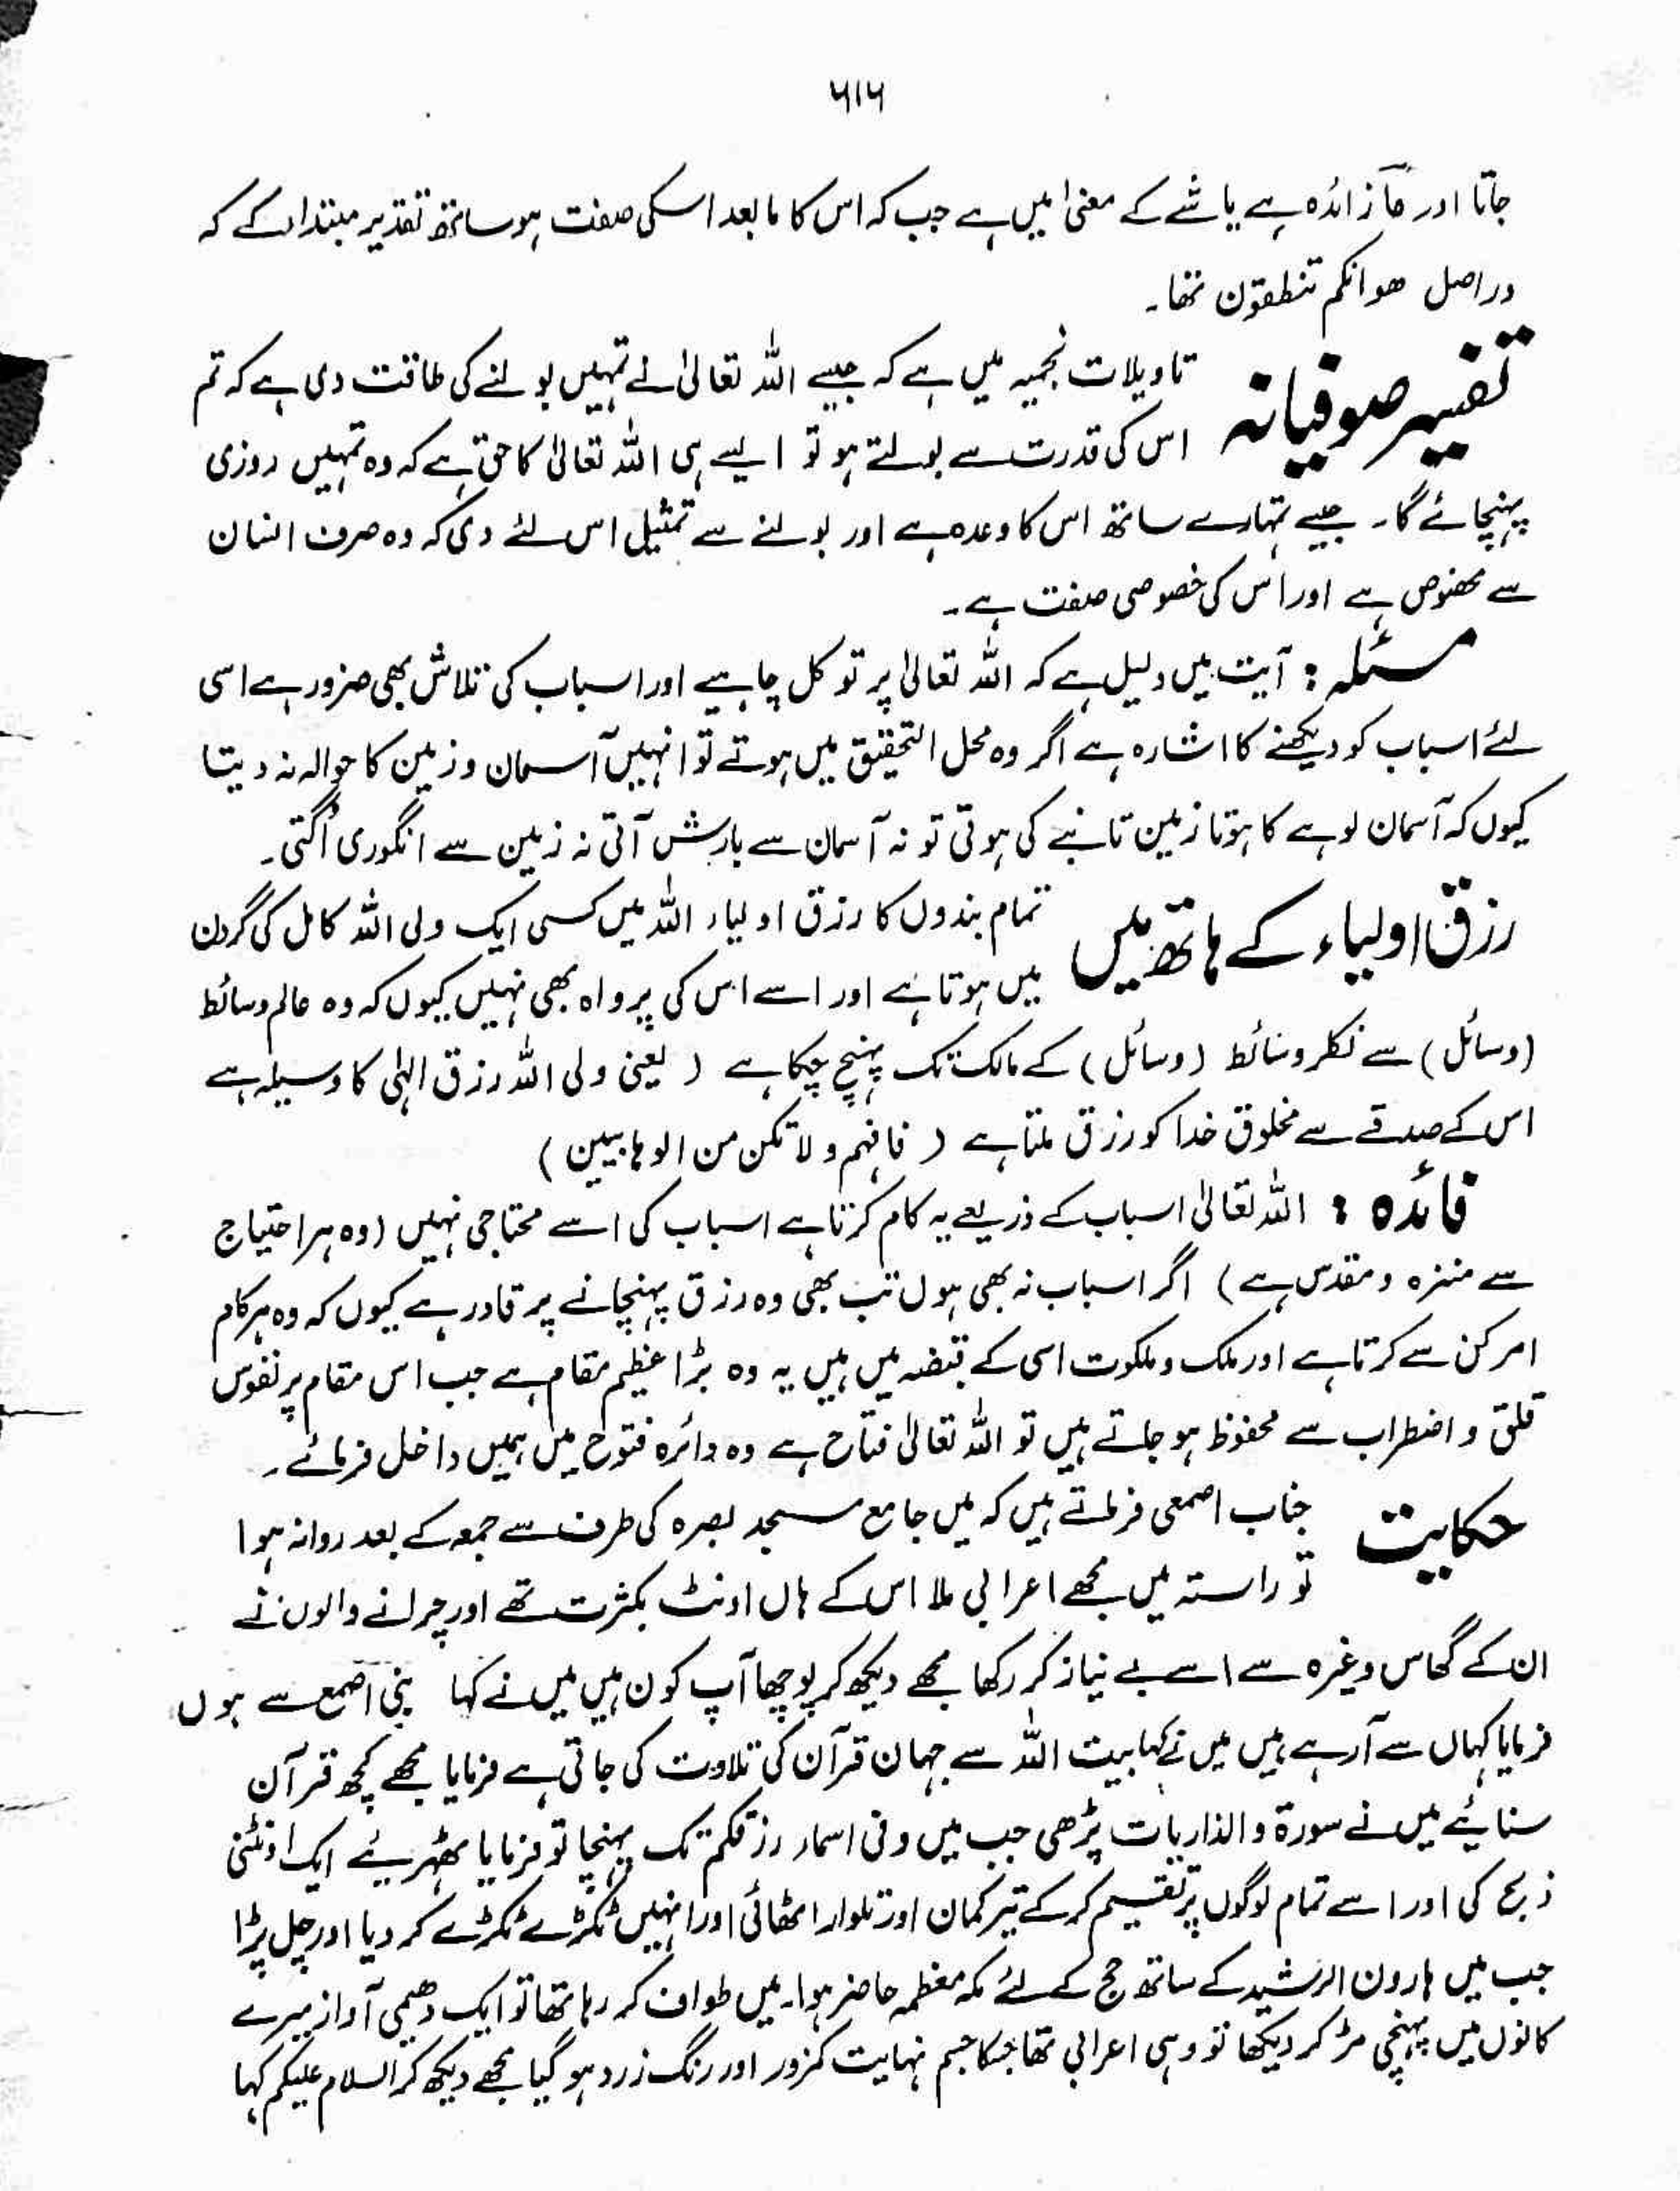 ۶۱۶
جاتا اور مآ زائدہ ہے یا شے کے معنیٰ میں ہے جب کہ اس کا ما بعد اسکی صفت ہو ساتھ تقدیر مبتدا کے کہ
دراصل ھو انکم تنطقون تھا۔
تفسیر صوفیانہ تاویلات نجمیہ میں ہے کہ جیسے اللہ تعالیٰ نے تمہیں بولنے کی طاقت دی ہے کہ تم
اس کی قدرت سے بولتے ہو تو ایسے ہی اللہ تعالیٰ کا حق ہے کہ وہ تمہیں روزی
پہنچائے گا۔ جیسے تمہارے ساتھ اس کا وعدہ ہے اور بولنے سے تمثیل اس لئے دی کہ وہ صرف انسان
سے مخصوص ہے اور اس کی خصوصی صفت ہے۔
مسئلہ : آیت میں دلیل ہے کہ اللہ تعالیٰ پر توکل چاہیے اور اسباب کی تلاش بھی ضرور ہے اسی
لئے اسباب کو دیکھنے کا اشارہ ہے اگر وہ محل التحقیق میں ہوتے تو انہیں آسمان و زمین کا حوالہ نہ دیتا
کیوں کہ آسمان لوہے کا ہوتا زمین تانبے کی ہوتی تو نہ آسمان سے بارش آتی نہ زمین سے انگوری اُگتی۔
رزق اولیاء کے ہاتھ میں تمام بندوں کا رزق اولیاء اللہ میں کسی ایک ولی اللہ کامل کی گردن
میں ہوتا ہے اور اسے اس کی پرواہ بھی نہیں کیوں کہ وہ عالم وسائط
(وسائل) سے نکلر وسائط (وسائل) کے مالک تک پہنچ چکا ہے (یعنی ولی اللہ رزق الہٰی کا وسیلہ ہے
اس کے صدقے سے مخلوق خدا کو رزق ملتا ہے (فافہم و لا تکن من الوہابیین)
فائدہ : اللہ تعالیٰ اسباب کے ذریعے یہ کام کرتا ہے اسباب کی اسے محتاجی نہیں (وہ ہر احتیاج
سے منزہ و مقدس ہے) اگر اسباب نہ بھی ہوں تب بھی وہ رزق پہنچانے پر قادر ہے کیوں کہ وہ ہر کام
امر کن سے کرتا ہے اور ملک و ملکوت اسی کے قبضہ میں ہیں یہ وہ بڑا عظیم مقام ہے جب اس مقام پر نفوس
قلق و اضطراب سے محفوظ ہو جاتے ہیں تو اللہ تعالیٰ فتاح ہے وہ دائرہ فتوح میں ہمیں داخل فرمائے۔
حکایت جناب اصمعی فرماتے ہیں کہ میں جامع مسجد بصرہ کی طرف سے جمعہ کے بعد روانہ ہوا
تو راستہ میں مجھے اعرابی ملا اس کے ہاں اونٹ بکثرت تھے اور چرانے والوں نے
ان کے گھاس وغیرہ سے اسے بے نیاز کر رکھا مجھے دیکھ کر پوچھا آپ کون ہیں میں نے کہا بنی اصمع سے ہوں
فرمایا کہاں سے آرہے ہیں میں نے کہا بیت اللہ سے جہان قرآن کی تلاوت کی جاتی ہے فرمایا مجھے کچھ قرآن
سنائیے میں نے سورۃ والذاریات پڑھی جب میں وفی اسماء رزقکم تک پہنچا تو فرمایا ٹھہریئے ایک اونٹنی
ذبح کی اور اسے تمام لوگوں پر تقسیم کر کے تیر کمان اور تلوار اٹھائی اور انہیں ٹکڑے ٹکڑے کر دیا اور چل پڑا
جب میں ہارون الرشید کے ساتھ حج کے لئے مکہ معظمہ حاضر ہوا۔ میں طواف کر رہا تھا تو ایک دھیمی آواز میرے
کانوں میں پہنچی مڑ کر دیکھا تو وہی اعرابی تھا جسکا جسم نہایت کمزور اور رنگ زرد ہو گیا مجھے دیکھ کر السلام علیکم کہا